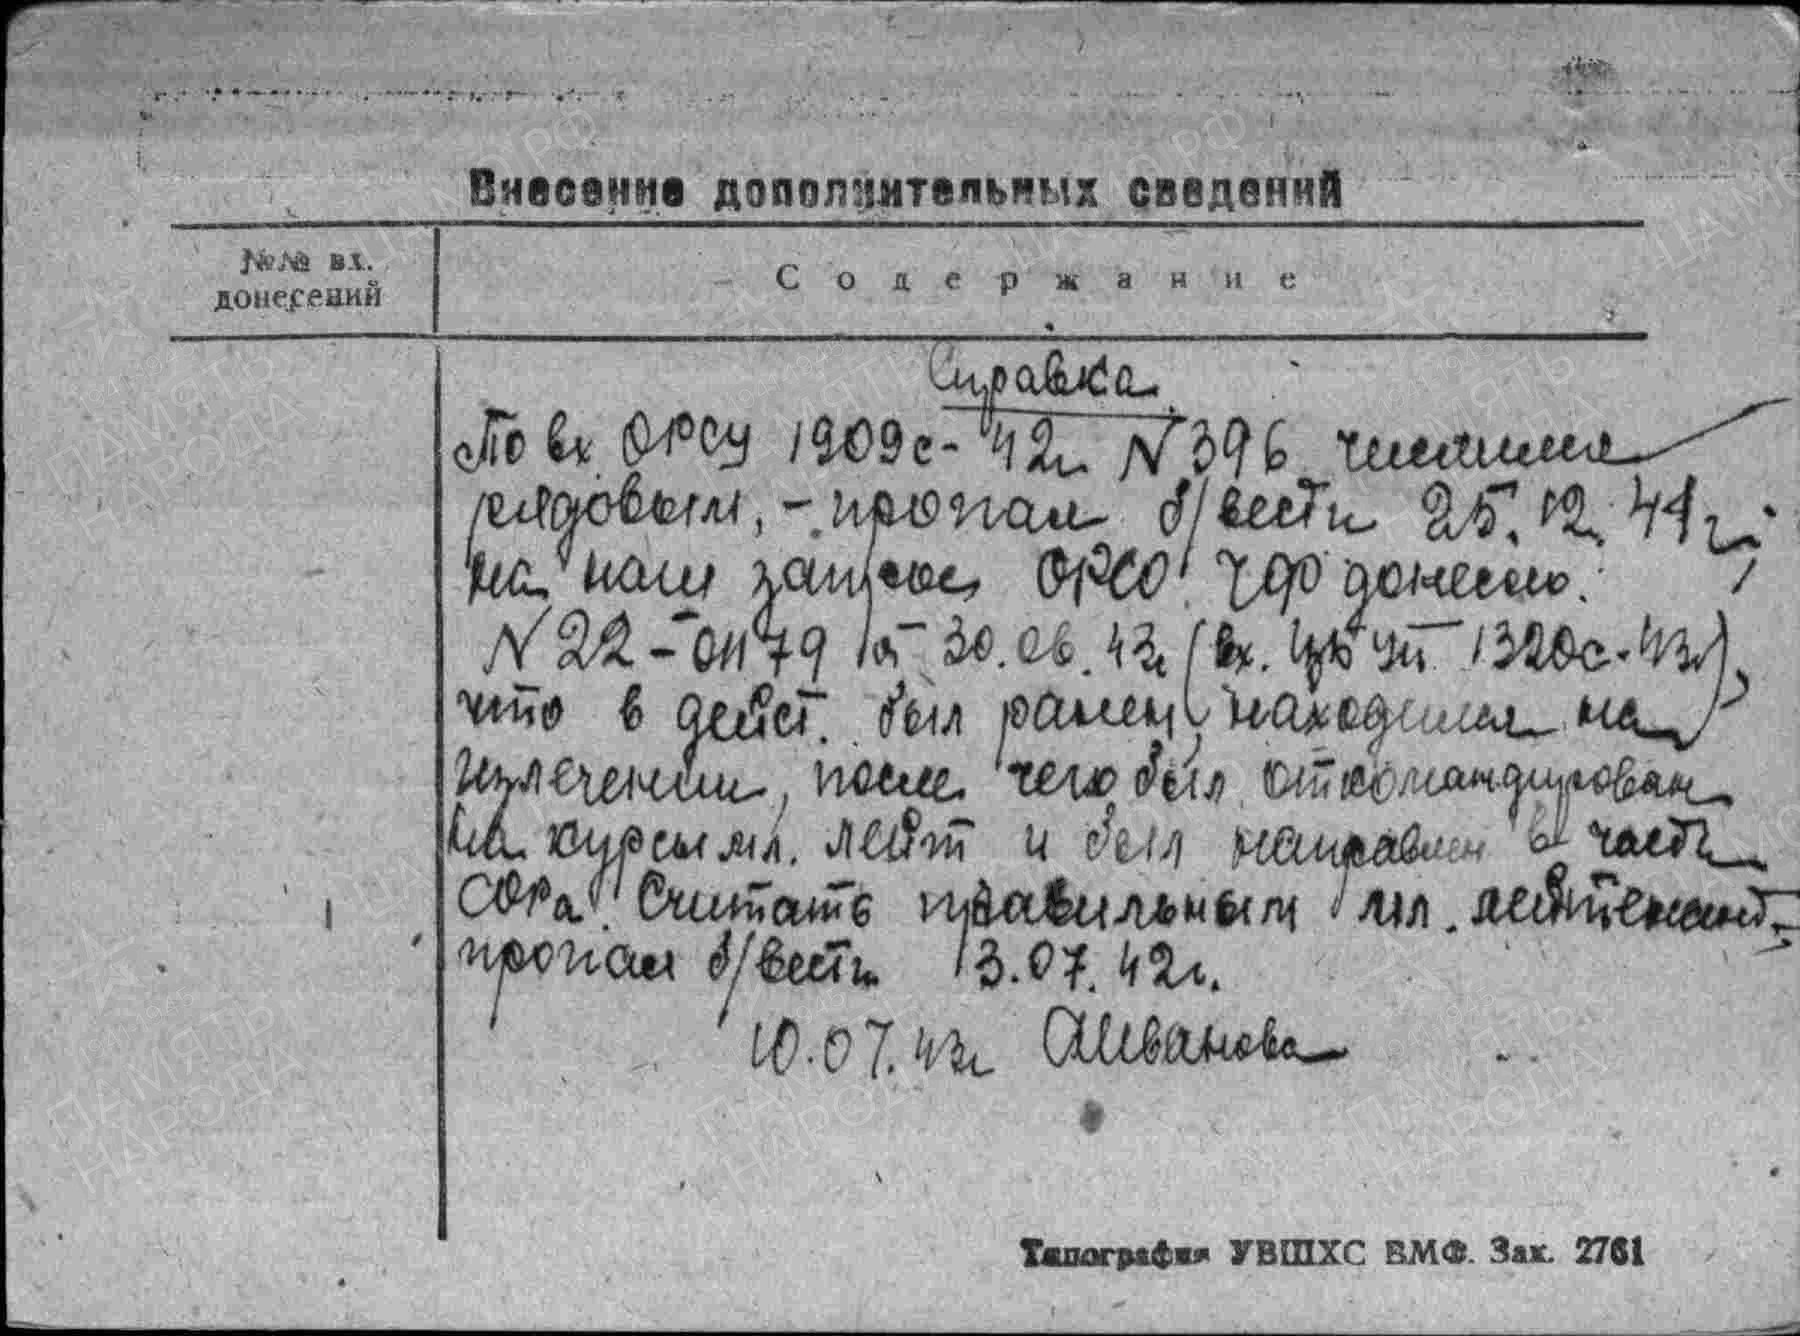 Внесение дополнительных сведений
№№ вх.
донесений
Содержание
Справка
По вх ОРСУ 1909с-42г N 396 числился
рядовым, - пропал б/вести 25.12.41г.;
на наш запрос ОРСО ЧФ донесло:
N 22-ОП79 от 30.06.43г (вх. 1320с-43г),
что в дейст. был ранен, находился на
излечении, после чего был откомандирован
на курсы мл. лейт и был направлен в часть
СОРа. Считать правильным мл. лейтенант,
пропал б/вести 13.07.42г.
10.07.43г АИванова
Типография УВШХС ВМФ. Зак. 2761
ПАМЯТЬ
НАРОДА